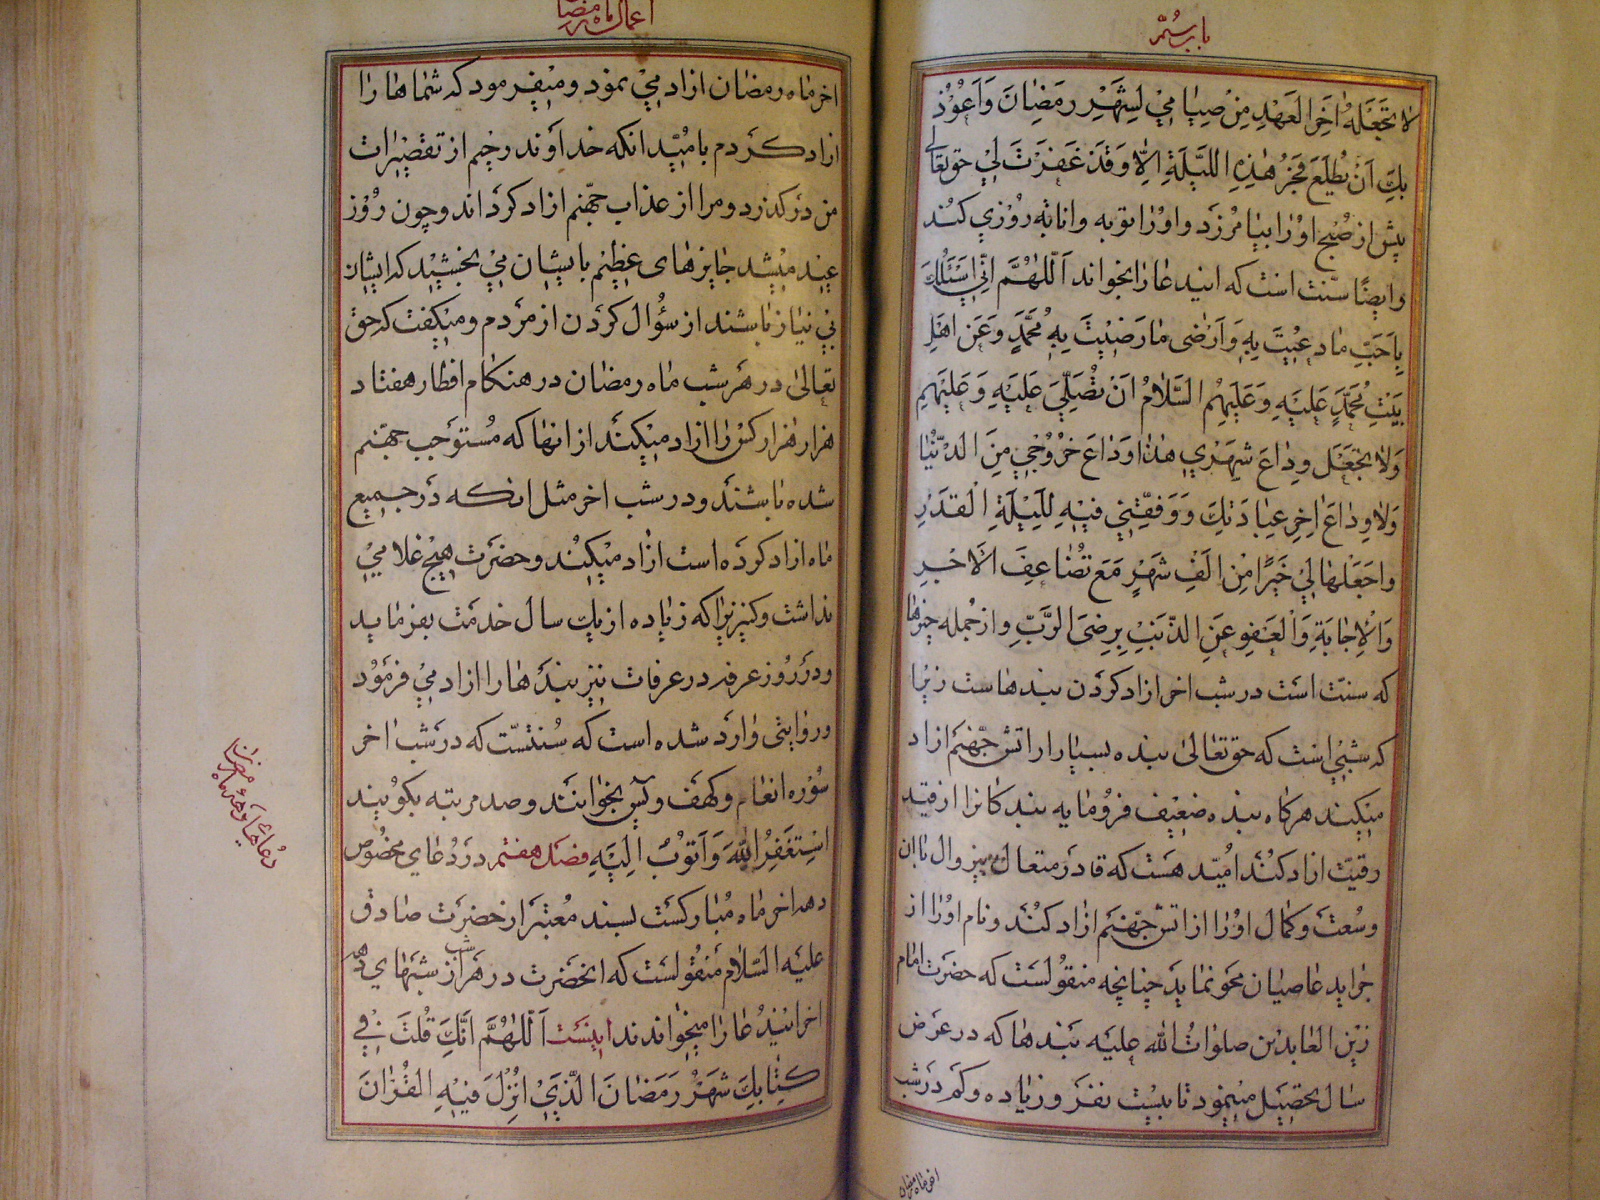 باب سیّم
لا تجعله اخر العهد من صیامی لشهر رمضان و اعوذ
بك ان یطلع فجر هذه اللیلة الّا و قد غفرت لی حق تعالی
پیش از صبح او را بیامرزد و او را توبه و انابه روزی کند
و ایضا سنّت است که این دعا را بخواند اللهمّ انّی اسئلك
باحبّ ما دعیت به و ارضی ما رضیت به محمّد و عن اهل
بیت محمّد علیه و علیهم السّلام ان تصلّی علیه و علیهم
و لا تجعل وداع شهری هذا وداع خروجی من الدّنیا
و لا وداع اخر عبادتك و وفقتنی فیه للیلة القدر
و اجعلها لی خیرا من الف شهر مع تضاعف الاخر
و الاجابة و العفو عن الذّنب برضی الرّبّ و از جمله چیزها
که سنّت است در شب اخر ازاد کردن بندهاست زیرا
که شبی است که حق تعالی بنده بسیار را از اتش جهنّم ازاد
میکند هرکاه بنده ضعیف فرومایه بندکانرا از قید
رقیّت ازاد کند امّید هست که قادر متعال بیزوال باان
وسعت و کمال او را از اتش جهنّم ازاد کند و نام او را از
جراید عاصیان محو نماید چنانچه منقولست که حضرت امام
زین العابدین صلوات الله علیه بندها که در عرض
سال تحصیل مینمود تا بیست نفر و زیاده و کم در شب
اخر ماه رمضان
اعمال ماه رمضان
اخر ماه رمضان ازاد می نمود و میفرمود که شماها را
ازاد کردم بامّید انکه خداوند رحیم از تقصیرات
من درکذرد و مرا از عذاب جهنّم ازاد کرداند و چون روز
عید میشد جایزهای عظیم بایشان می بخشید که ایشان
بی نیاز باشند از سؤال کردن از مردم و میکفت که حق
تعالی در هر شب ماه رمضان در هنکام افطار هفتاد
هزار هزار کس را ازاد میکند از انها که مستوجب جهنّم
شده باشند و در شب اخر مثل انکه در جمیع
ماه ازاد کرده است ازاد میکند و حضرت هیچ غلامی
نداشت و کنیزیرا که زیاده از یك سال خدمت بفرماید
و در روز عرفه در عرفات نیز بندها را ازاد می فرمود
و روایتی وارد شده است که سنتست که در شب اخر
سوره انعام و کهف و یس بخوانند و صد مرتبه بکویند
استغفر الله و اتوب الیه فصل هفتم در دعای مخصوص
دهه اخر ماه مبارکست بسند معتبر از حضرت صادق
علیه السّلام منقولست که انحضرت در هر شب از شبهای دهه
اخر این دعا را میخواندند اینست اللّهمّ انّك قلت فی
کتابك شهر رمضان الّذی انزل فیه القران